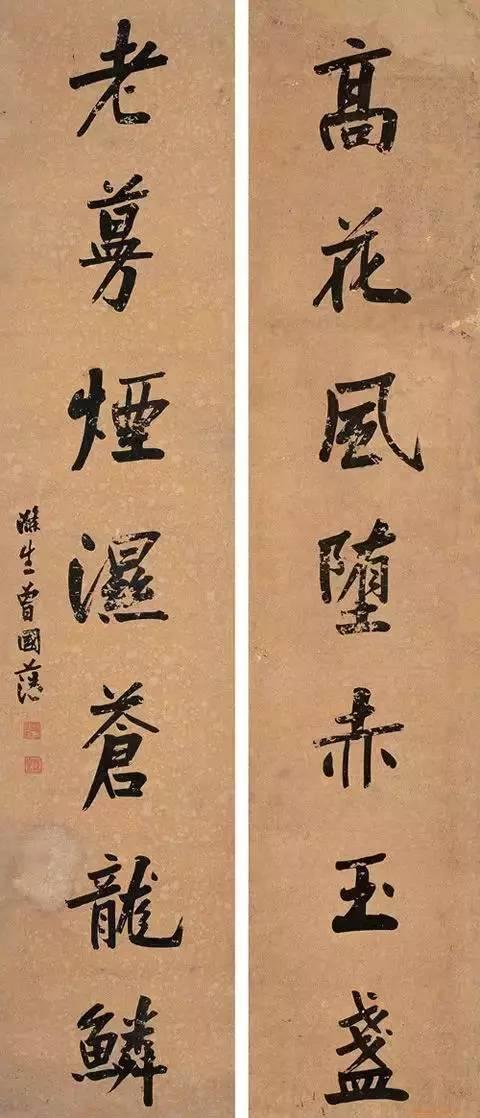 髙花風堕赤玉盞
老蔓煙濕蒼龍鱗
滌生曾國藩